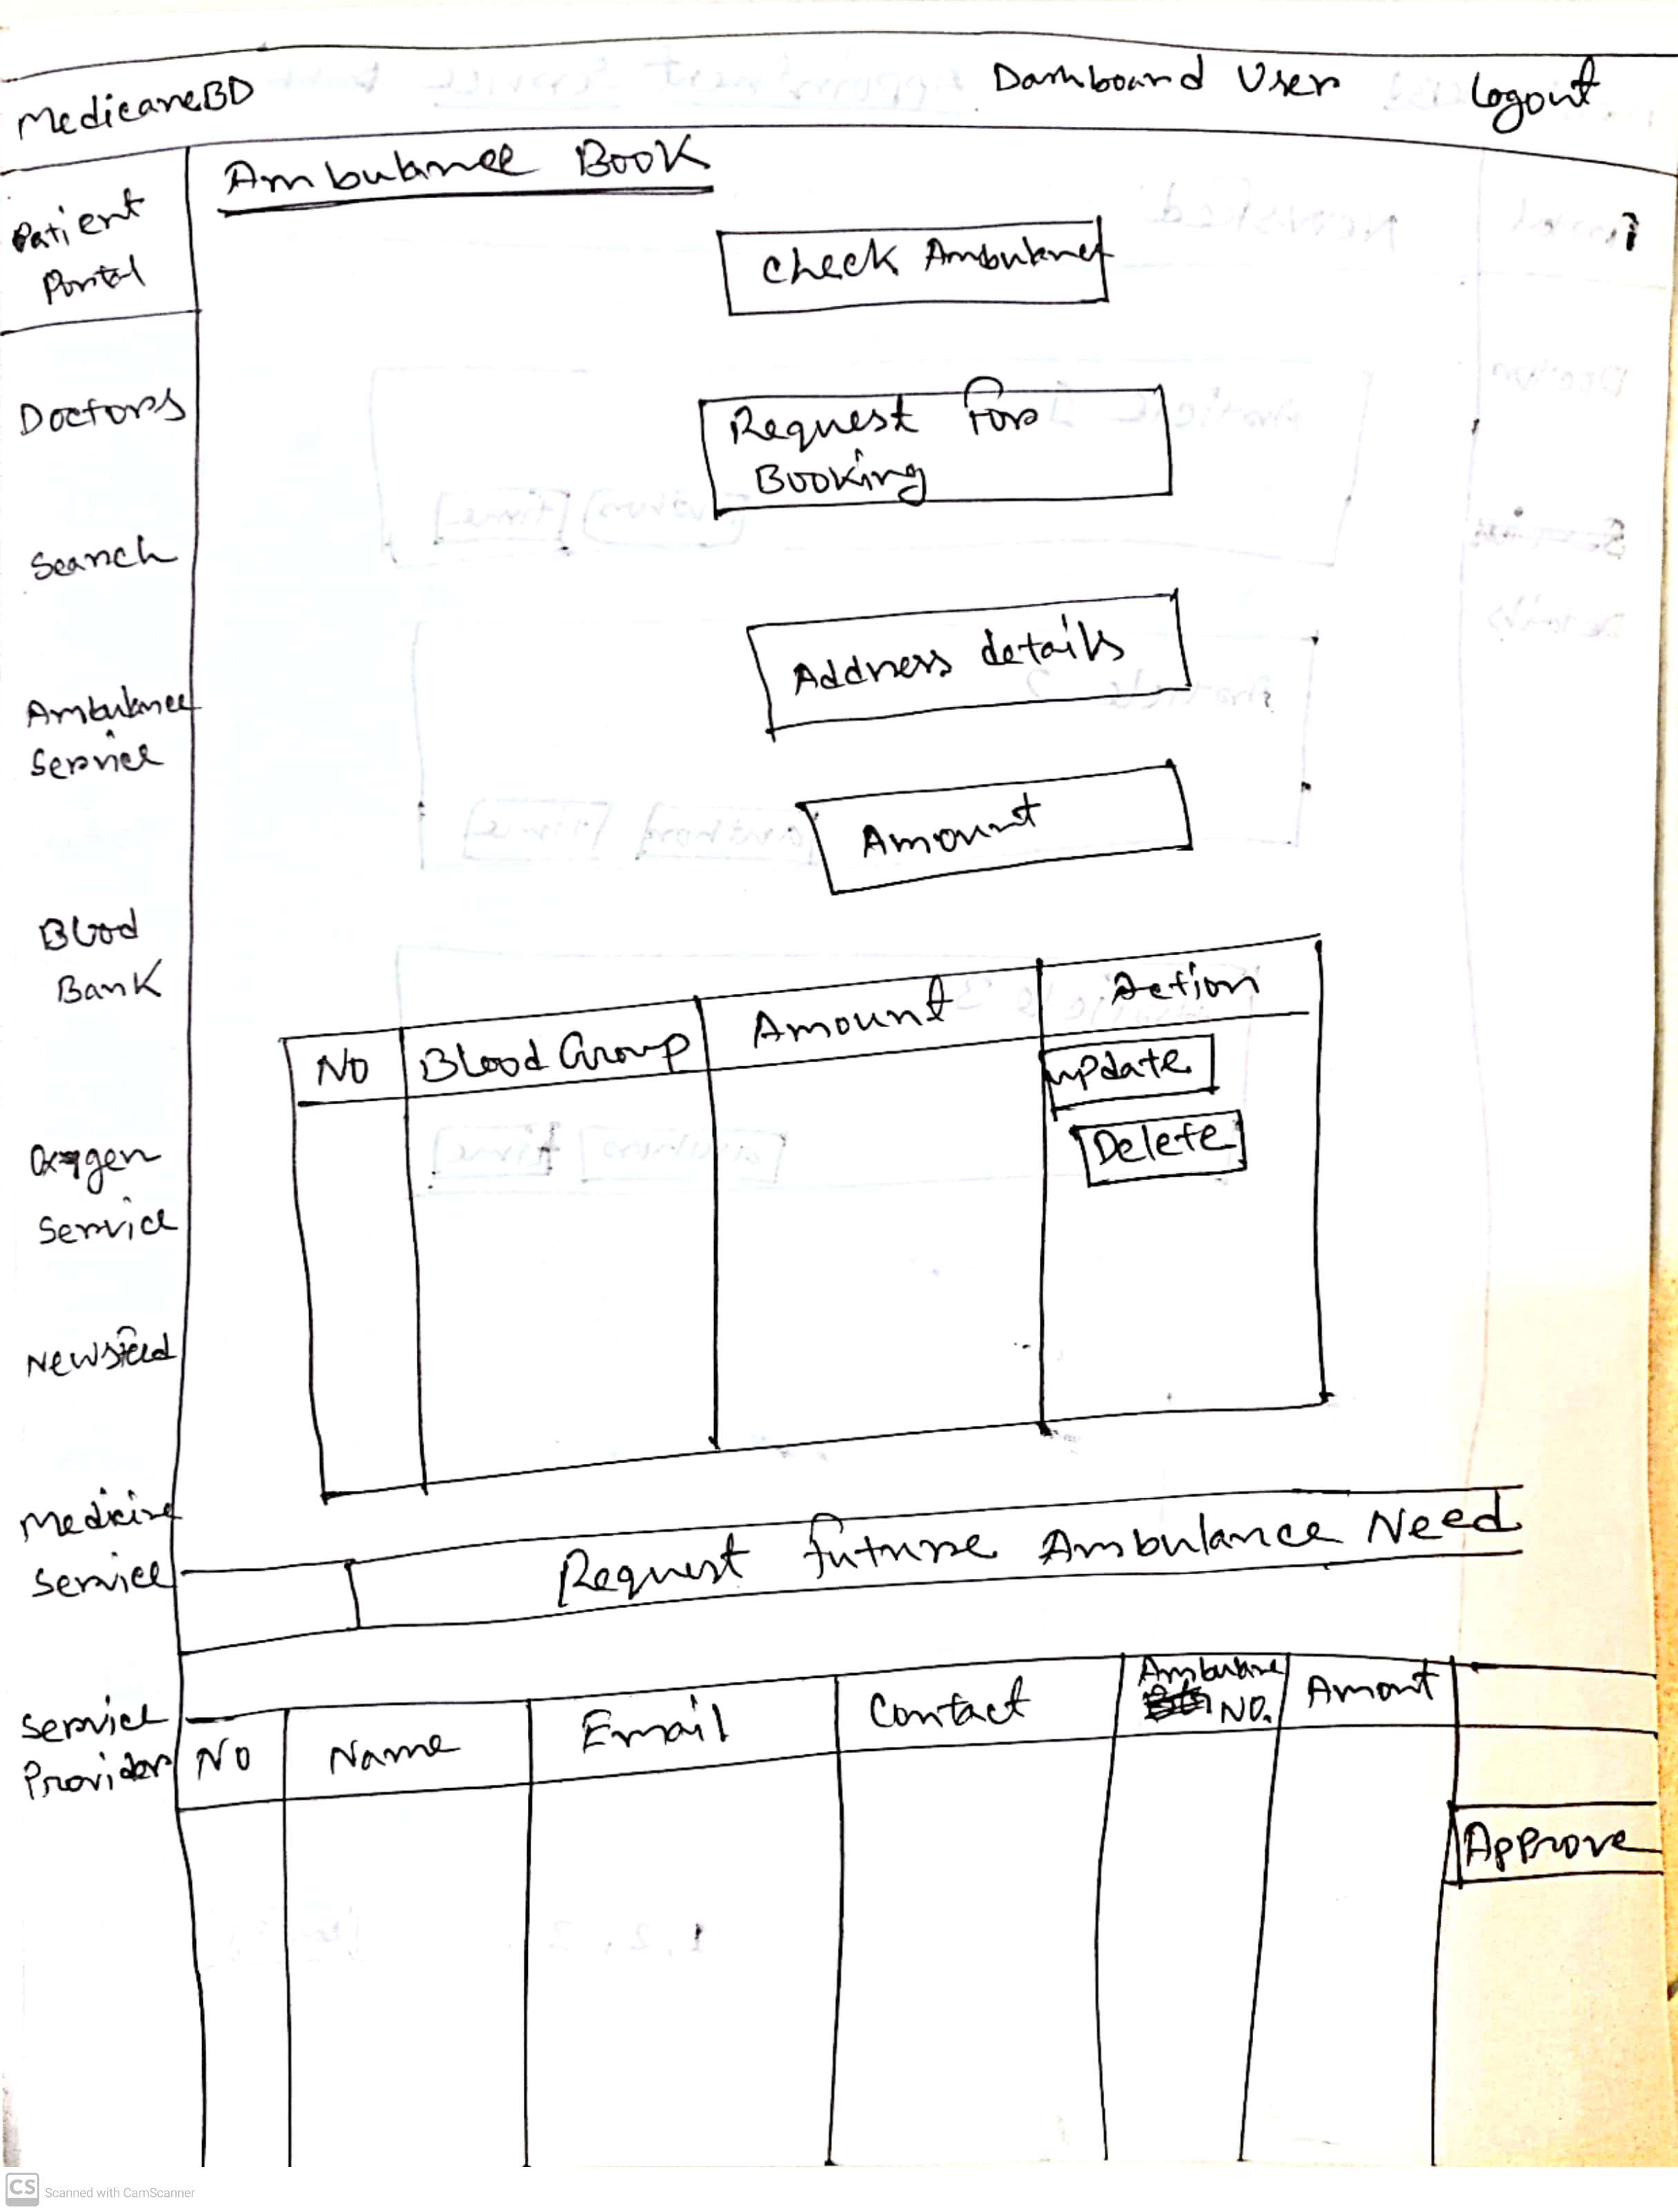 MedicareBD
Dashboard User
Logout
Patient
Portal
Doctors
Search
Ambulance
Service
Blood
Bank
Oxygen
Service
Newsfeed
Medicine
Service
Service
Providers
Ambulance Book
Check Ambulance
Request For
Booking
Address details
Amount
No
Blood Group
Amount
Action
update
Delete
Request future Ambulance Need
No
Name
Email
Contact
Ambulance
NO.
Amount
Approve
CS
Scanned with CamScanner